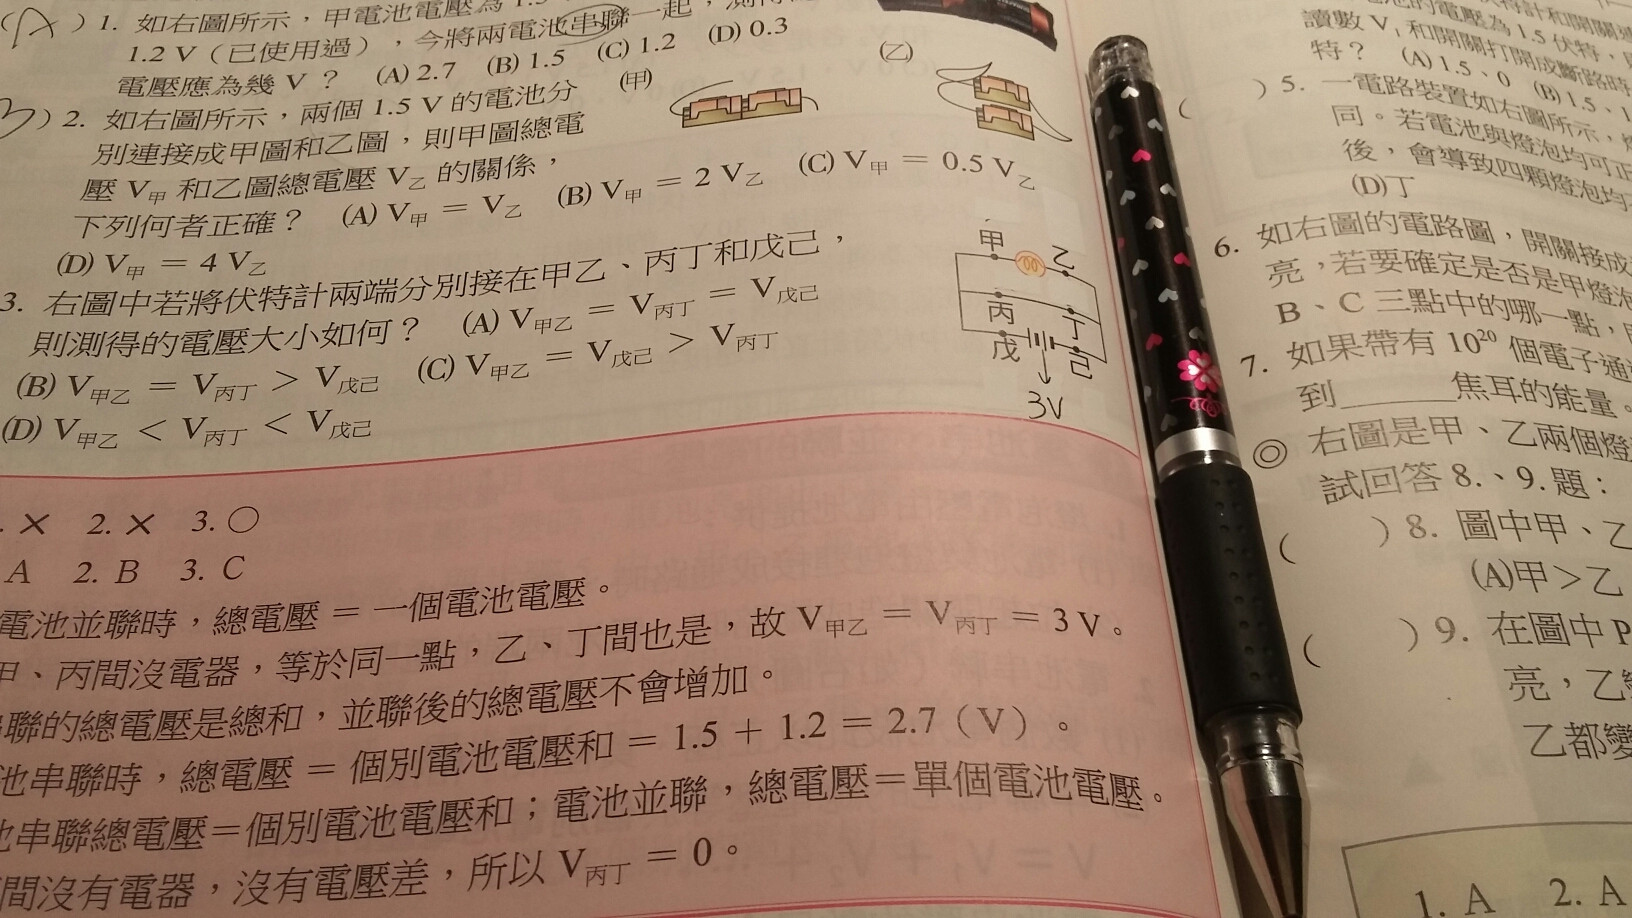 (A) 1. 如右圖所示，甲電池電壓為 1.5
1.2 V（已使用過），今將兩電池串聯一起，測得
電壓應為幾 V？ (A) 2.7 (B) 1.5 (C) 1.2 (D) 0.3
) 2. 如右圖所示，兩個 1.5 V 的電池分
別連接成甲圖和乙圖，則甲圖總電
壓 V甲 和乙圖總電壓 V乙 的關係，
下列何者正確？ (A) V甲 = V乙 (B) V甲 = 2 V乙 (C) V甲 = 0.5 V乙
(D) V甲 = 4 V乙
(甲)
(乙)
3. 右圖中若將伏特計兩端分別接在甲乙、丙丁和戊己，
則測得的電壓大小如何？ (A) V甲乙 = V丙丁 = V戊己
(B) V甲乙 = V丙丁 > V戊己 (C) V甲乙 = V戊己 > V丙丁
(D) V甲乙 < V丙丁 < V戊己
甲 乙
丙 丁
戊 己
3V
. × 2. × 3. ○
A 2. B 3. C
電池並聯時，總電壓 = 一個電池電壓。
甲、丙間沒電器，等於同一點，乙、丁間也是，故 V甲乙 = V丙丁 = 3 V。
聯的總電壓是總和，並聯後的總電壓不會增加。
池串聯時，總電壓 = 個別電池電壓和 = 1.5 + 1.2 = 2.7（V）。
池串聯總電壓＝個別電池電壓和；電池並聯，總電壓＝單個電池電壓。
間沒有電器，沒有電壓差，所以 V丙丁 = 0。
池的電壓為 1.5 伏特，
讀數 V1 和開關打開成斷路時
特？ (A) 1.5、0 (B) 1.5、1
( ) 5. 一電路裝置如右圖所示，
同。若電池與燈泡均可正
後，會導致四顆燈泡均
(D)丁
6. 如右圖的電路圖，開關接成
亮，若要確定是否是甲燈泡
B、C 三點中的哪一點，
7. 如果帶有 10²⁰ 個電子通
到______焦耳的能量。
◎ 右圖是甲、乙兩個燈
試回答 8.、9. 題：
( ) 8. 圖中甲、乙
(A)甲＞乙
( ) 9. 在圖中 P
亮，乙
乙都變
1. A 2. A